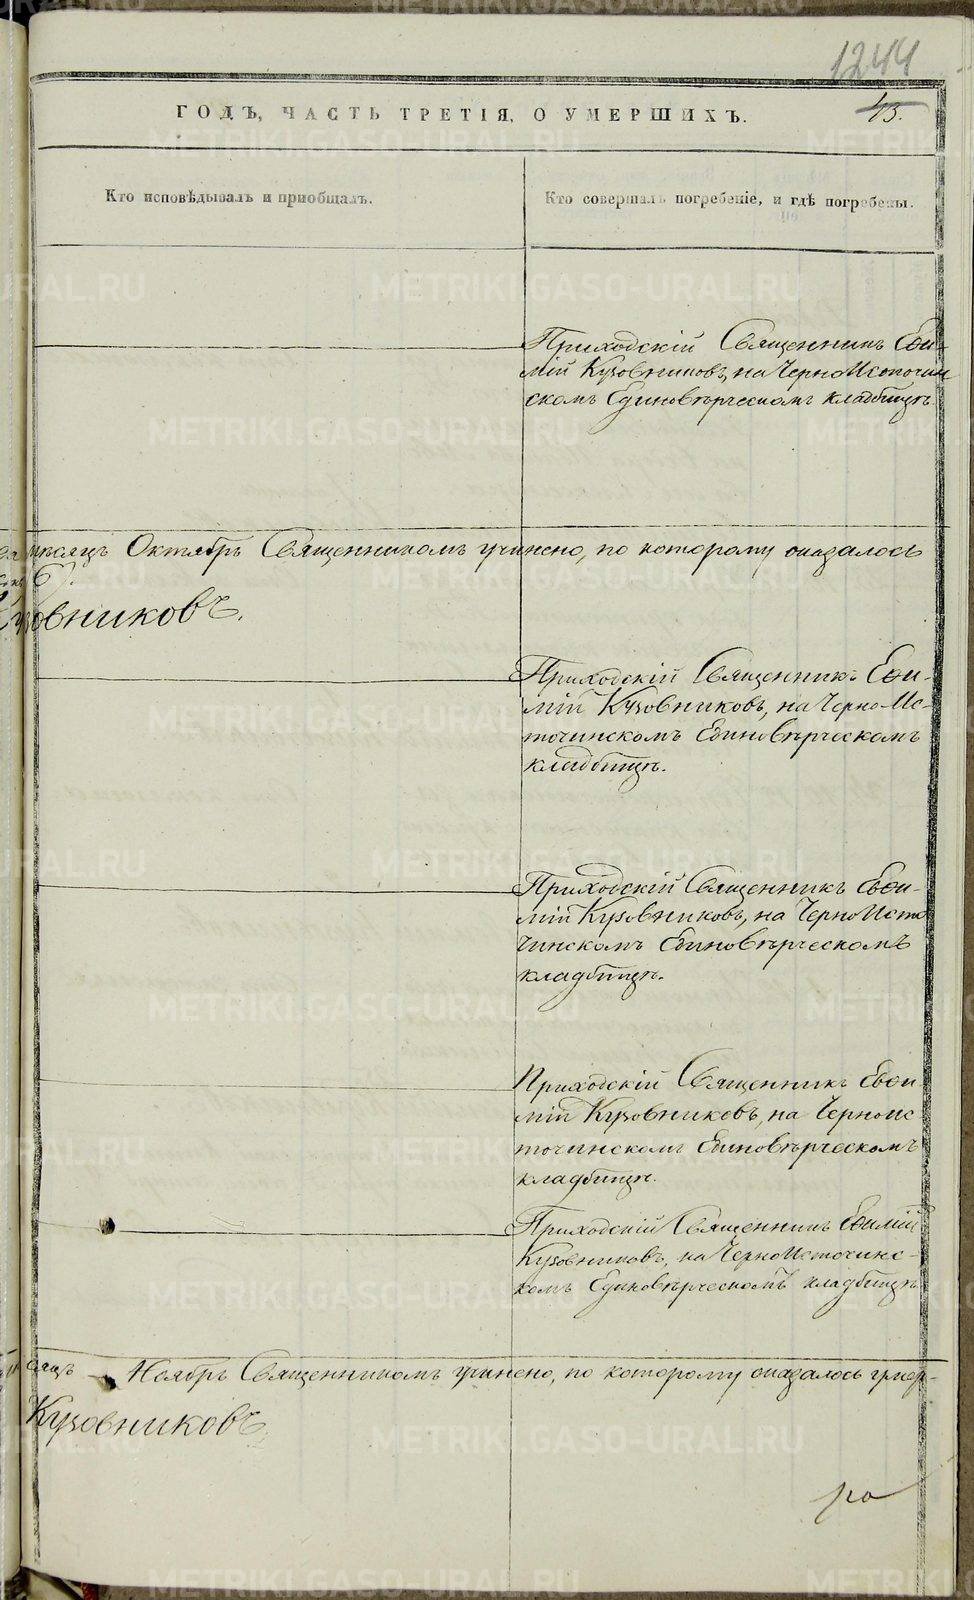 1244
45.
ГОДЪ, ЧАСТЬ ТРЕТІЯ, О УМЕРШИХЪ.
Кто исповѣдывалъ и приобщалъ.
Кто совершалъ погребеніе, и гдѣ погребены.
Приходскій Священникъ Еѳи-
мій Кузовниковъ, на ЧерноИсточин
скомъ Единовѣрческомъ кладбищѣ.
мѣсяцъ Октябрь Священникомъ учинено, по которому оказалось
6).
Кузовниковъ.
Приходскій Священникъ Еѳи-
мій Кузовниковъ, на Черно-Ис-
точинскомъ Единовѣрческомъ
кладбищѣ.
Приходскій Священникъ Еѳи-
мій Кузовниковъ, на ЧерноИсто
чинскомъ Единовѣрческомъ
кладбищѣ.
Приходскій Священникъ Еѳи
мій Кузовниковъ, на Черноис
точинскомъ Единовѣрческомъ
кладбищѣ.
Приходскій Священникъ Еѳимій
Кузовниковъ, на ЧерноИсточинс-
комъ Единовѣрческомъ кладбищѣ
сяцъ Ноябрь Священникомъ учинено, по которому оказалось умер-
Кузовниковъ
METRIKI.GASO-URAL.RU